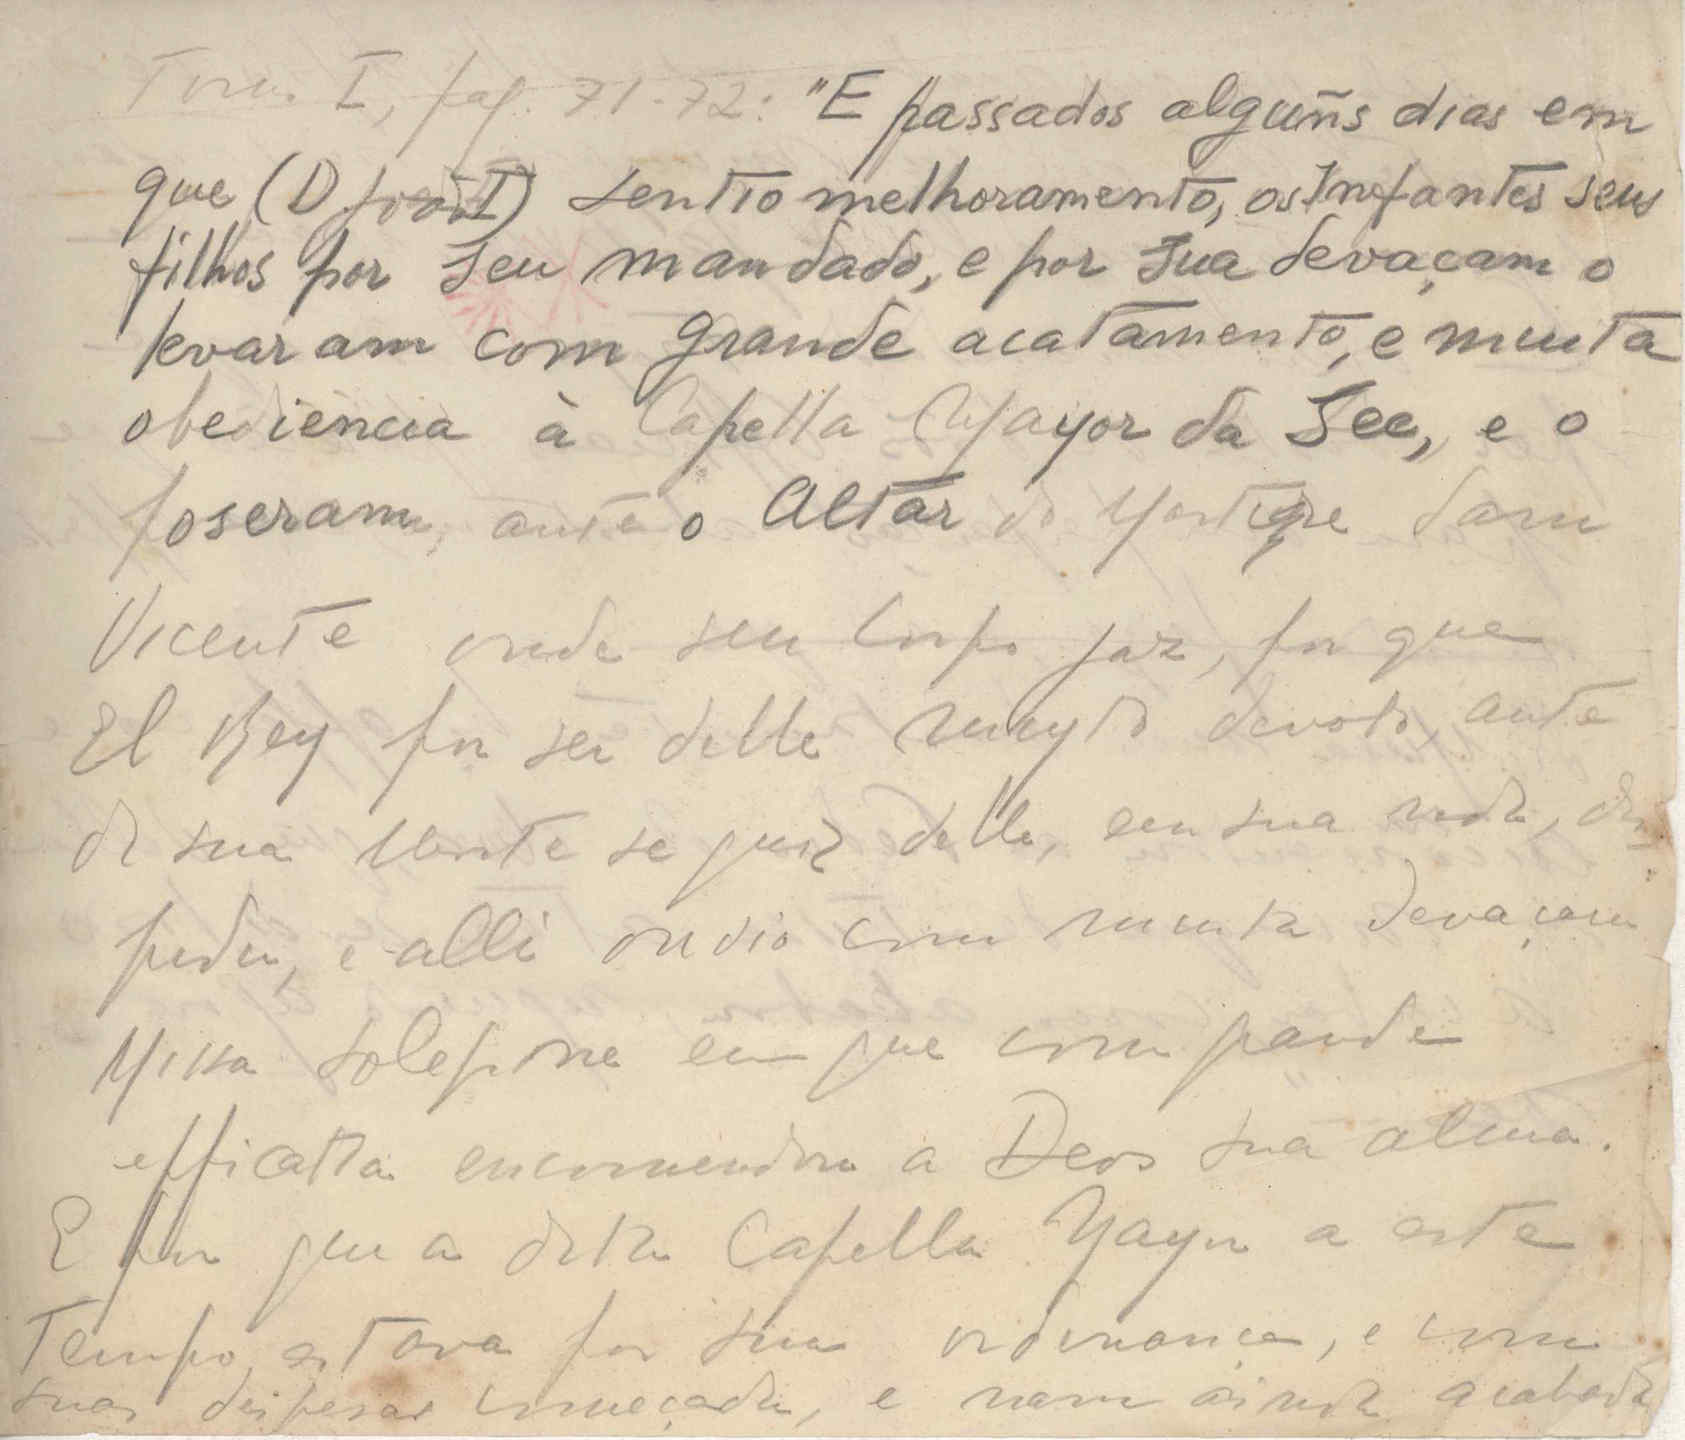 Tomo I, pag. 71-72: "E passados alguñs dias em
que (D João I) sentio melhoramento, os Infantes seus
filhos por seu mandado, e por sua devaçam o
levaram com grande acatamento, e muita
obediencia à Capella Mayor da See, e o
poseram, ante o Altar do Martyre Sam
Vicente onde seu Corpo jaz, por que
El Rey por ser delle muyto devoto, ante
de sua Morte se quiz delle, em sua vida, des-
pedir, e alli ouvio com muita devaçam
Missa solepne em que com grande
efficatia encomendou a Deos sua alma.
E por que a dita Capella Mayor a este
Tempo estava por sua ordenança, e com
suas despesas começada, e nam ainda acabada